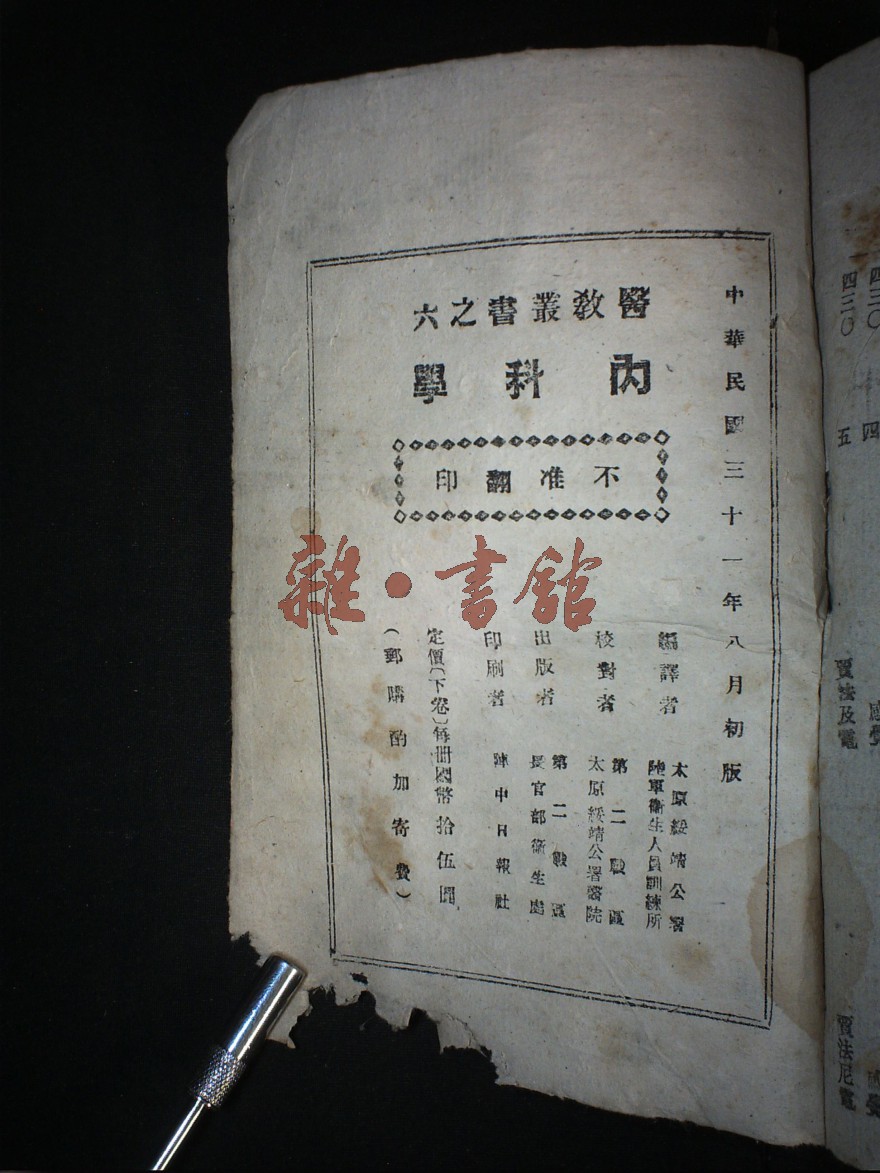 中華民國三十一年八月初版
醫教叢書之六
內科學
不准翻印
編譯者
太原綏靖公署
陸軍衛生人員訓練所
校對者
第二戰區
太原綏靖公署醫院
出版者
第二戰區
長官部衛生處
印刷者
陣中日報社
定價(下卷)每冊國幣拾伍圓
(郵購酌加寄費)
雜·書館
四三〇
四三〇
四
五
賈法及電
感覺
賈法尼電